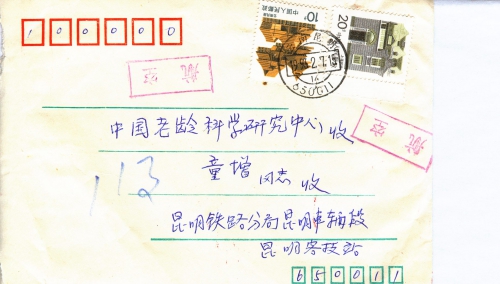 100000
10分
中国人民邮政
20分
650011
航空
航空
中国老龄科学研究中心收
113
童增同志收
昆明铁路分局昆明车辆段
昆明客技站
650011